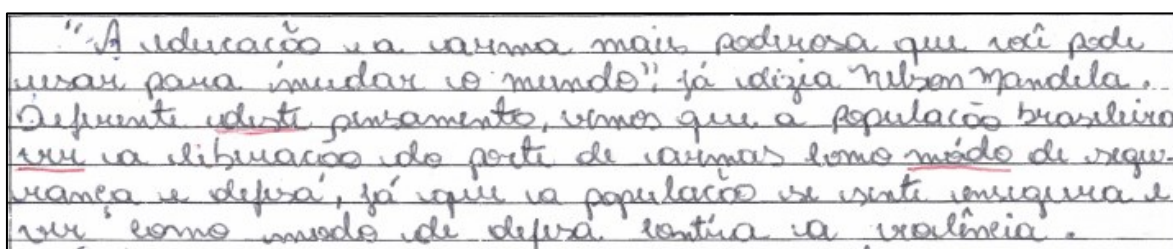 "A educacão e a arma mais poderosa que você pode
usar para mudar o mundo", já dizia Nelson Mandela.
Diferente deste pensamento, vemos que a população brasileira
ver a liberação do porte de armas como módo de segu-
rança e defesa, já que a população se sente insegura e
ver como modo de defesa contra a violência.